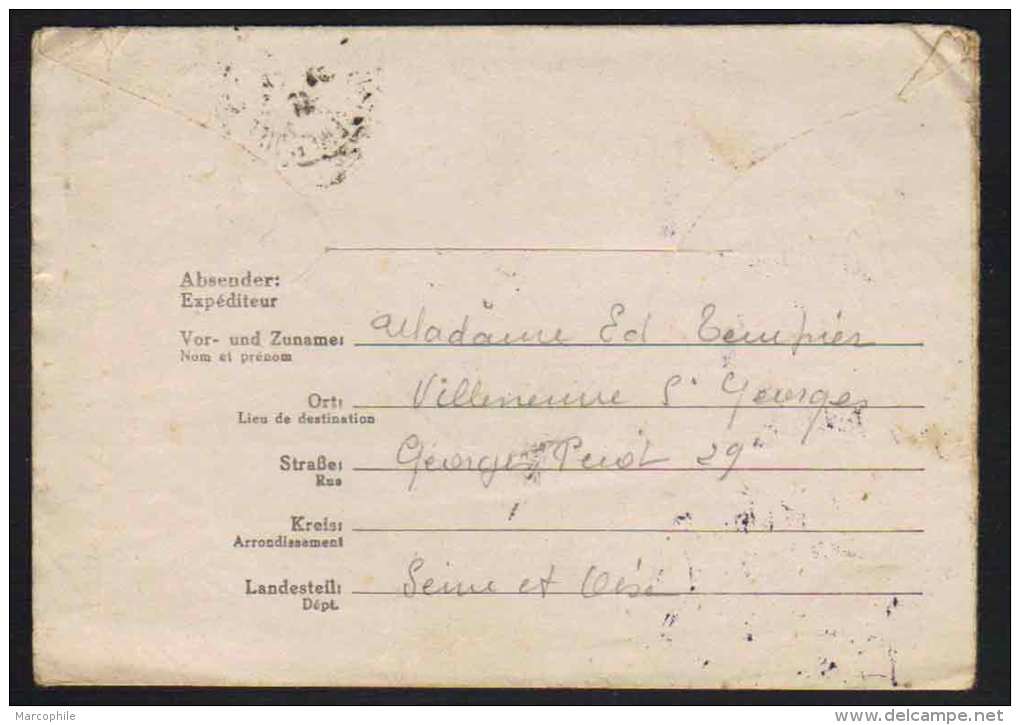 Absender:
Expéditeur
Vor- und Zuname: Madame Ed Tempier
Nom et prénom
Ort: Villeneuve St Georges
Lieu de destination
Straße: Georges 29
Rue
Kreis:
Arrondissement
Landesteil: Seine et Oise
Dépt.
Marcophile
delcampe.net